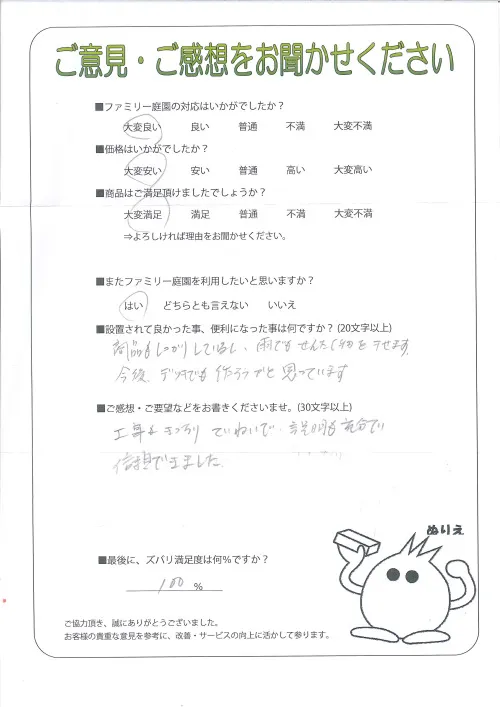 ご意見・ご感想をお聞かせください
■ファミリー庭園の対応はいかがでしたか?
大変良い 良い 普通 不満 大変不満
■価格はいかがでしたか?
大変安い 安い 普通 高い 大変高い
■商品はご満足頂けましたでしょうか?
大変満足 満足 普通 不満 大変不満
⇒よろしければ理由をお聞かせください。
■またファミリー庭園を利用したいと思いますか?
はい どちらとも言えない いいえ
■設置されて良かった事、便利になった事は何ですか? (20文字以上)
商品もしっかりしているし、雨でもせんたく物を干せます。
今後、デッキでも作ろうかと思っています
■ご感想・ご要望などをお書きくださいませ。(30文字以上)
工事もきっちり ていねいで、説明も充分で
できました
ぬりえ
■最後に、ズバリ満足度は何%ですか?
100 %
ご協力頂き、誠にありがとうございました。
お客様の貴重な意見を参考に、改善・サービスの向上に活かして参ります。